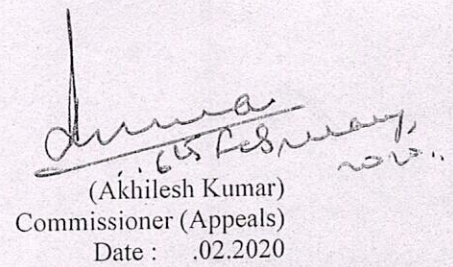 6th February,
2020.
(Akhilesh Kumar)
Commissioner (Appeals)
Date : .02.2020